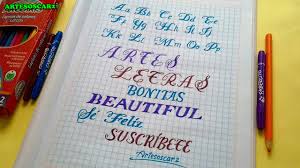 ARTESOSCARZ
Aa Bb Cc Dd Ee
Ff Gg Hh Ii Jj
Kk Ll Mm Oo Pp
ARTES
LETRAS
BONITAS
BEAUTIFUL
Sé Feliz
SUSCRÍBEEE
Artesoscarz